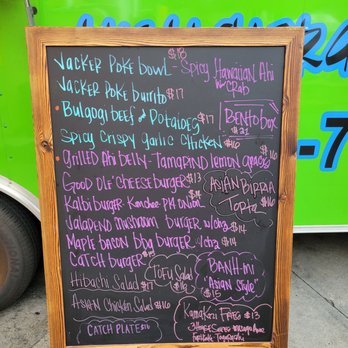 Jacker Poke bowl - Spicy Hawaiian Ahi
$18
w crab
Jacker Poke burrito $17
Bulgogi beef & Potatoes $17
Bento box
$21
Spicy crispy garlic chicken $16
Grilled Ahi belly - Tamarind lemon
Good Ol' cheeseburger $13
Asian Birria
Torta
Kalbi burger - Kimchee
onion
Jalapeno mushroom burger w/chz $14
Maple bacon bbq burger w/chz $14
Catch burger $15
Tofu Salad
$16
Banh-mi
"Asian Style"
$15
Hibachi Salad $17
Asian Chicken Salad $16
Catch Plate $16
Kamakazi Fries $13
-7